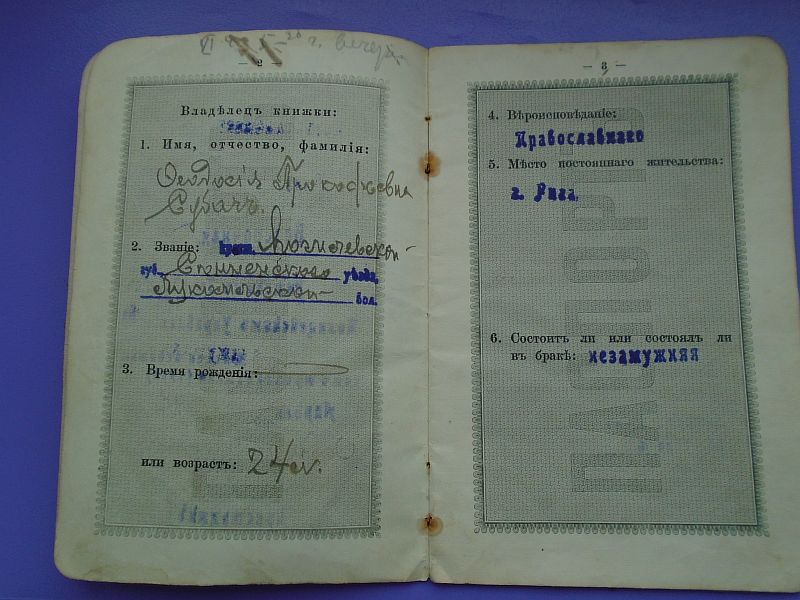 — 2 —
Владѣлецъ книжки:
1. Имя, отчество, фамилія:
Ѳеодосія Прокофьевна
Субачъ.
2. Званіе: крест. Могилевской
губ. Сѣнненскаго уѣзда,
Лукомльской вол.
3. Время рожденія:
или возрастъ: 24
— 3 —
4. Вѣроисповѣданіе:
Православнаго
5. Мѣсто постояннаго жительства:
г. Рига.
6. Состоитъ ли или состоялъ ли
въ бракѣ: незамужняя
ПАСПОРТ